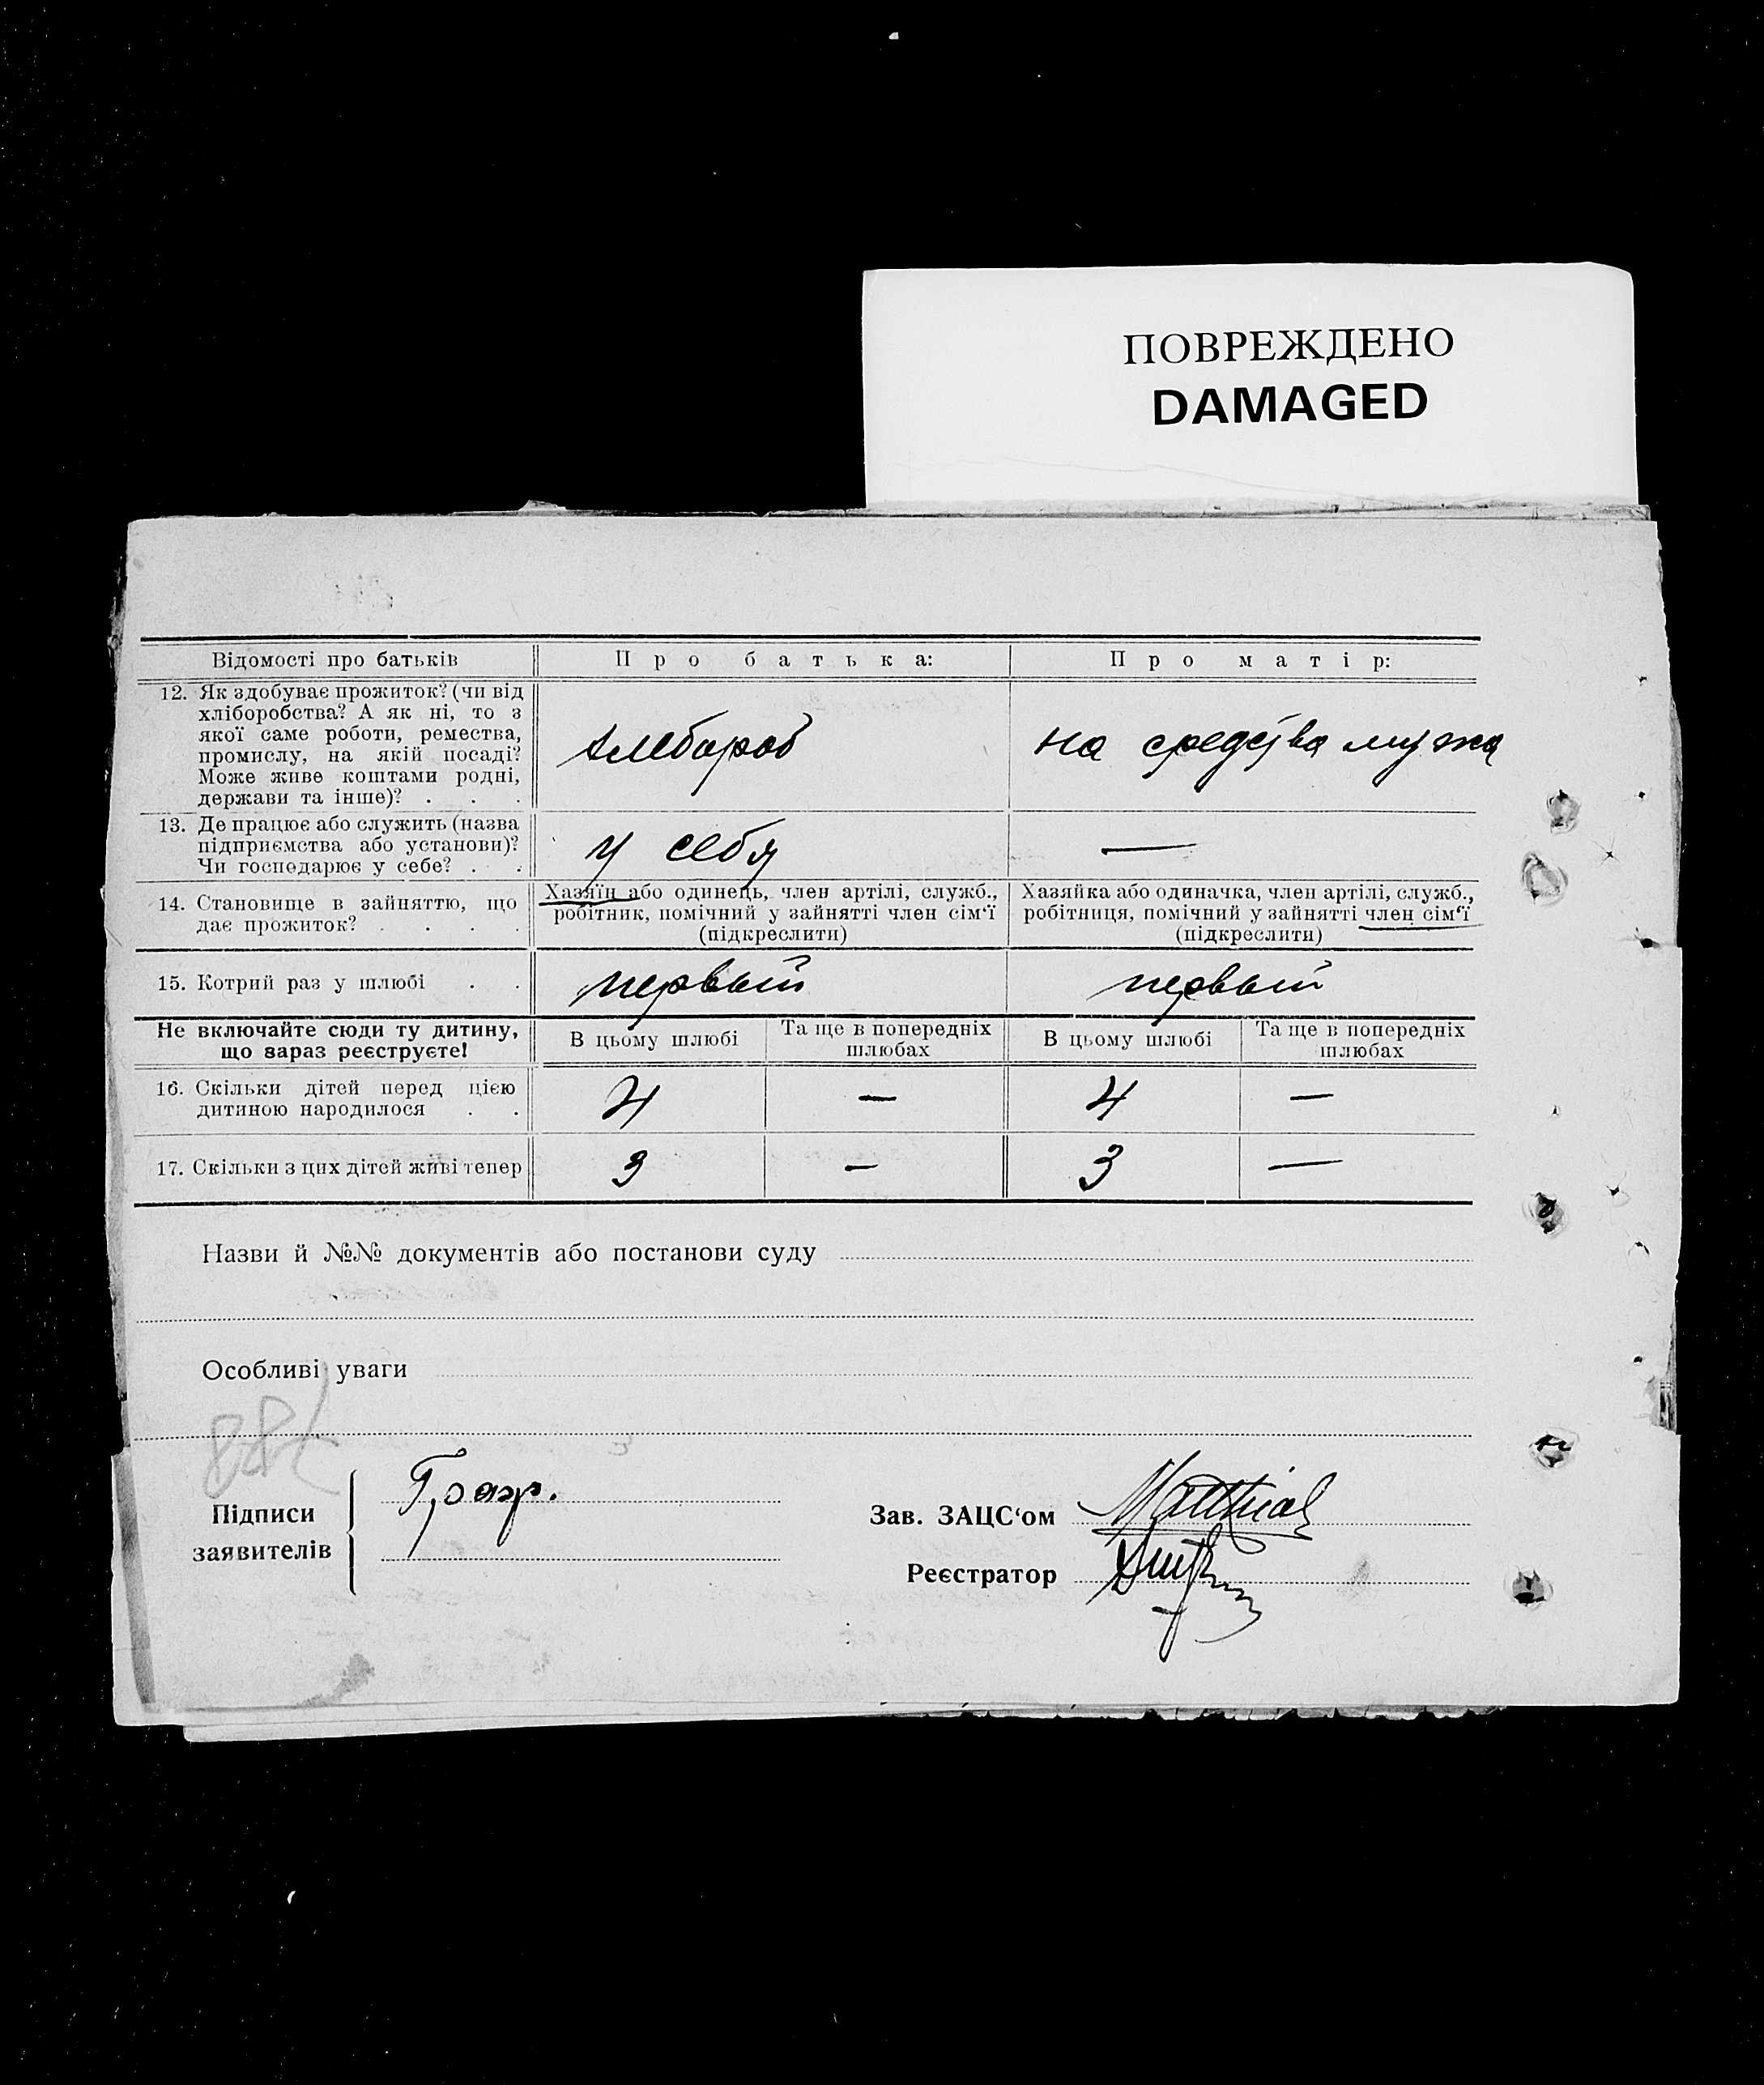 ПОВРЕЖДЕНО
DAMAGED
Відомості про батьків
Про батька:
Про матір:
12. Як здобуває прожиток? (чи від
хліборобства? А як ні, то з
якої саме роботи, ремества,
промислу, на якій посаді?
Може живе коштами родні,
держави та інше)? . . .
хлебороб
на средства мужа
13. Де працює або служить (назва
підприємства або установи)?
Чи господарює у себе? . .
у себя
—
14. Становище в зайняттю, що
дає прожиток? . . . .
Хазяїн або одинець, член артілі, служб.,
робітник, помічний у зайнятті член сім'ї
(підкреслити)
Хазяйка або одиначка, член артілі, служб.,
робітниця, помічний у зайнятті член сім'ї
(підкреслити)
15. Котрий раз у шлюбі . .
первый
первый
Не включайте сюди ту дитину,
що зараз реєструєте!
В цьому шлюбі
Та ще в попередніх
шлюбах
В цьому шлюбі
Та ще в попередніх
шлюбах
16. Скільки дітей перед цією
дитиною народилося . .
4
—
4
—
17. Скільки з цих дітей живі тепер
3
—
3
—
Назви й №№ документів або постанови суду
Особливі уваги
Підписи
заявителів
Зав. ЗАЦС'ом Matthies
Реєстратор